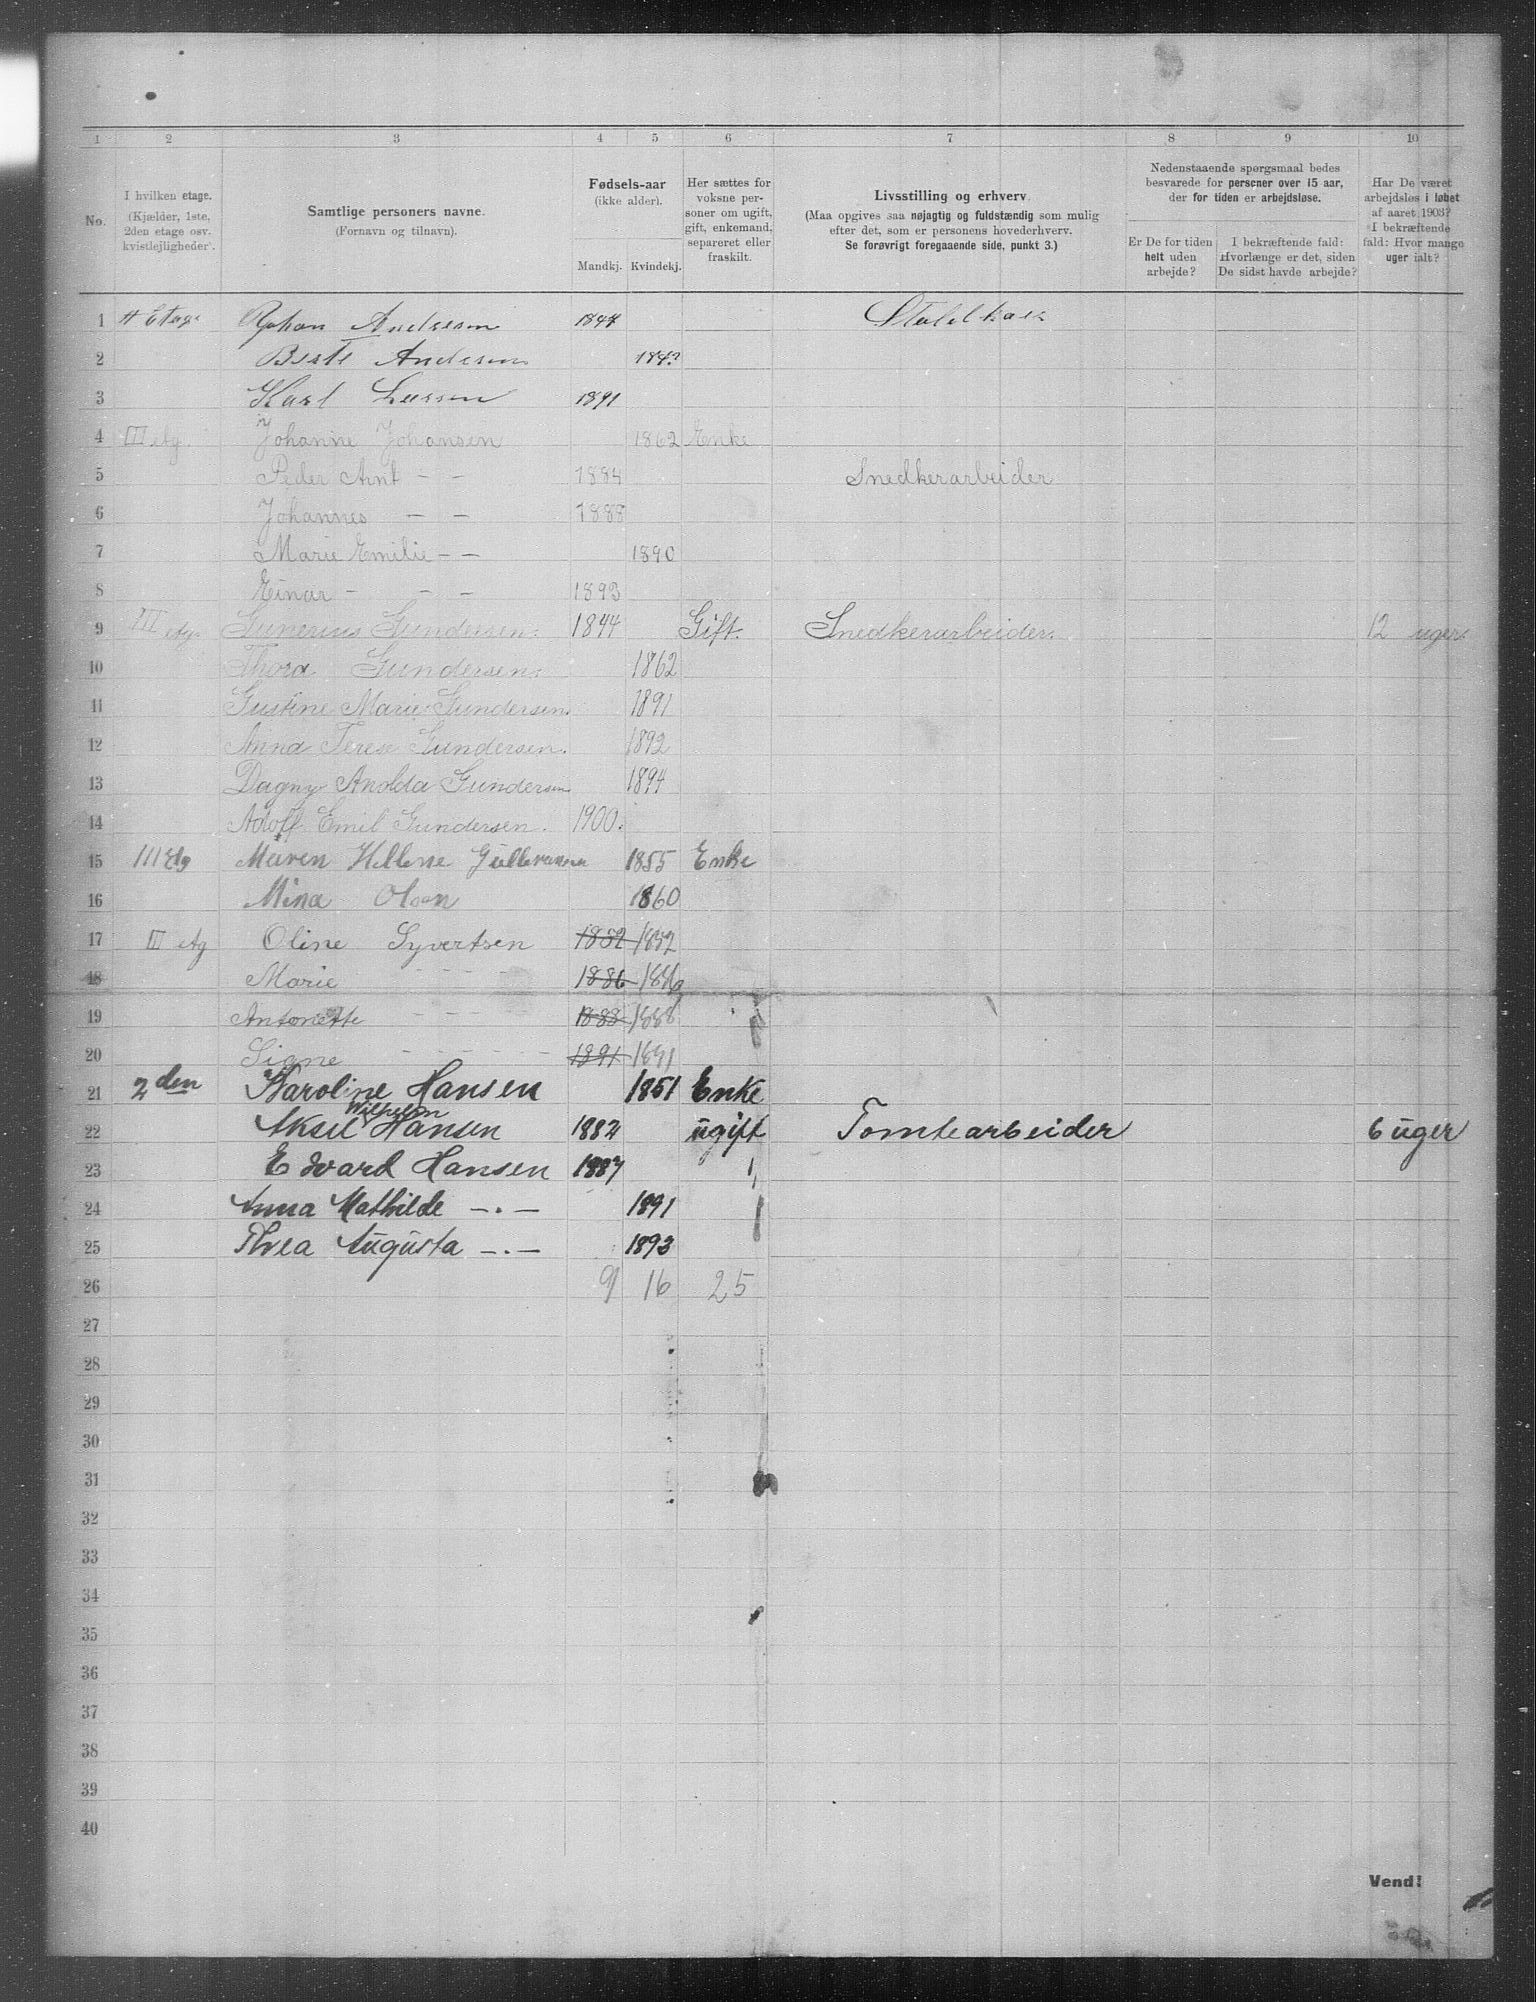 1 2 3 4 5 6 7 8 9 10
No.
I hvilken etage.
(Kjælder, 1ste,
2den etage osv.
kvistlejligheder).
Samtlige personers navne.
(Fornavn og tilnavn).
Fødsels-aar
(ikke alder).
Mandkj. Kvindekj.
Her sættes for
voksne per-
soner om ugift,
gift, enkemand,
separeret eller
fraskilt.
Livsstilling og erhverv.
(Maa opgives saa nøjagtig og fuldstændig som mulig
efter det, som er personens hovederhverv.
Se forøvrigt foregaaende side, punkt 3.)
Nedenstaaende spørgsmaal bedes
besvarede for personer over 15 aar,
der for tiden er arbejdsløse.
Er De for tiden
helt uden
arbejde?
I bekræftende fald:
Hvorlænge er det, siden
De sidst havde arbejde?
Har De været
arbejdsløs i løbet
af aaret 1903?
I bekræftende
fald: Hvor mange
uger ialt?
1 Etage Johan Andersen 1847
2 Andersen
3 Karl Larsen 1891
4 III etg. Johanne Johansen 1862 Enke
5 Peder Arnt - - 1884 Snedkerarbeider
6 Johannes - - 1888
7 Marie Emilie - - 1890
8 Einar - - - 1893
9 III etg. Gunerius Gundersen. 1844 Gift. Snedkerarbeider. 12 uger.
10 Thora Gundersen. 1862
11 Gustine Marie Gundersen. 1891
12 Anna Terese Gundersen. 1892
13 Dagny Anolda Gundersen 1894
14 Adolf Emil Gundersen. 1900.
15 III Etg Maren Hellene 1855 Enke
16 Mina Olsen 1860
17 III etg Oline Syvertsen 1852 1852
18 Marie - - - - 1886 1886
19 Antonette - - - 1888 1888
20 Signe - - - - - 1891 1891
21 2den Karoline Hansen 1851 Enke
22 Aksel Wilhelm Hansen 1882 ugift Tomtearbeider 6 uger
23 Edvard Hansen 1887
24 Anna Mathilde -.- 1891
25 Thea Augusta -.- 1893
26 9 16 25
27
28
29
30
31
32
33
34
35
36
37
38
39
40
Vend!